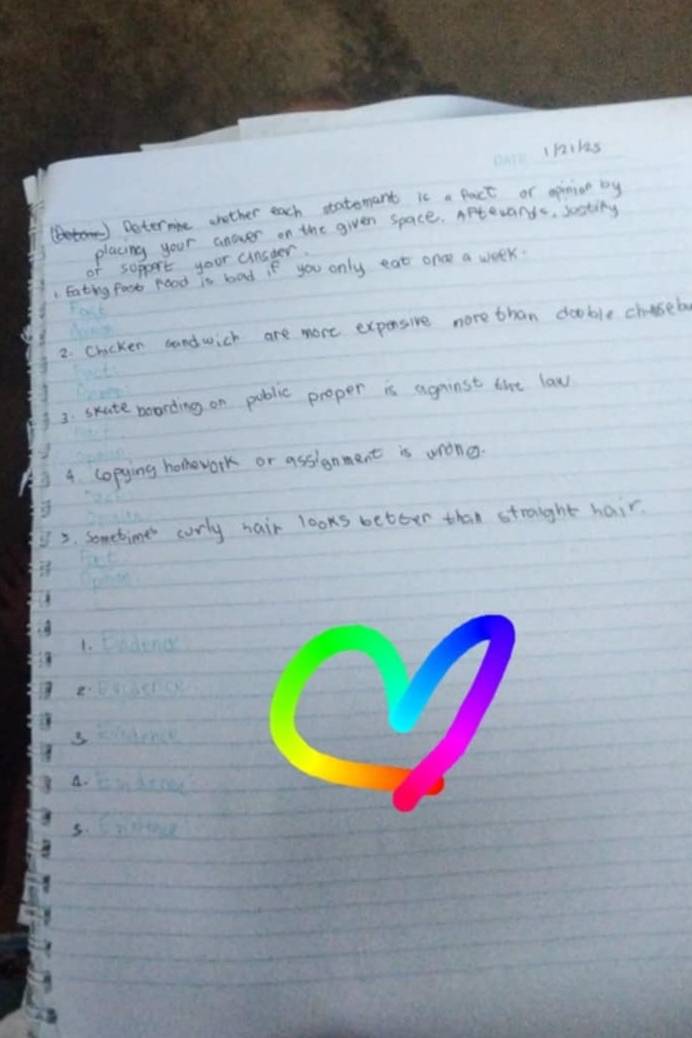 DATE 1/21/25
Determine whether each statemant is a fact or opinion by
placing your answer on the given space. Aftewards, Justify
or support your
1. Eating food is bad if you only eat once a week.
Fact
2. Chicken sandwich are more expensive more than double
Fact:
3. skate boarding on public proper is against the law
4. Copying homework or assignment is wrong.
5. Sometimes curly hair looks better than straight hair.
Fact
Opinion
1. Evidence
2. Evidence
3. Evidence
4. Evidence
5. Evidence